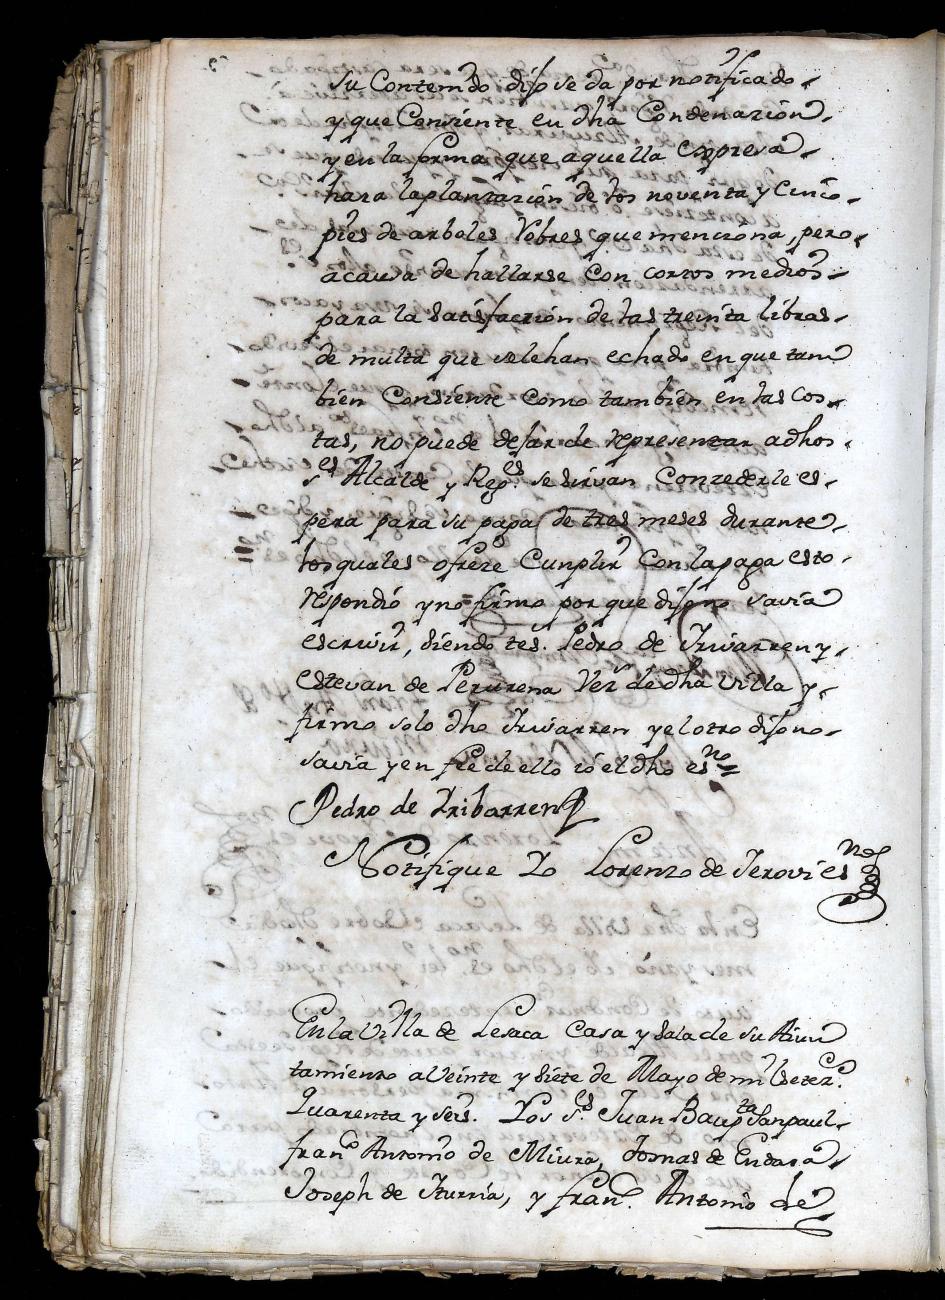 su Contenido dijo se da por notificado
y que Consiente en dha Condenazion
y en la forma que aquella expresa
hara la plantazion de los noventa y cinco
pies de arboles Robres que menciona, pero
a causa de hallarse con cortos medios
para la satisfazion de las treinta libras
de multa que se le han echado en que tam
bien Consiente como tambien en las cos
tas, no puede dejar de representar a dhos
s.es Alcalde y Reg.es se sirvan Conzederle es
pera para su paga de tres meses durante
los quales ofreze Cunplir con la paga esto
respondio y no firmo por que dijo no savia
escrivir, siendo tes. Pedro de Irivarren y
Estevan de Perurena Vez.s de dha villa y
firmo solo dho Irivarren y el otro dijo no
savia y en fee de ello io el dho es.no =
Pedro de Iribarren
Notifique Yo Lorenzo de Jerovi es.no
En la Villa de Lesaca Casa y Sala de su Aiun
tamiento a Veinte y siete de Mayo de mil setez.s
quarenta y seis. Los s.es Juan Baup.ta Sanpaul
fran.co Antonio de Miura, Tomas de Endara
Joseph de Iturria, y fran.co Antonio de